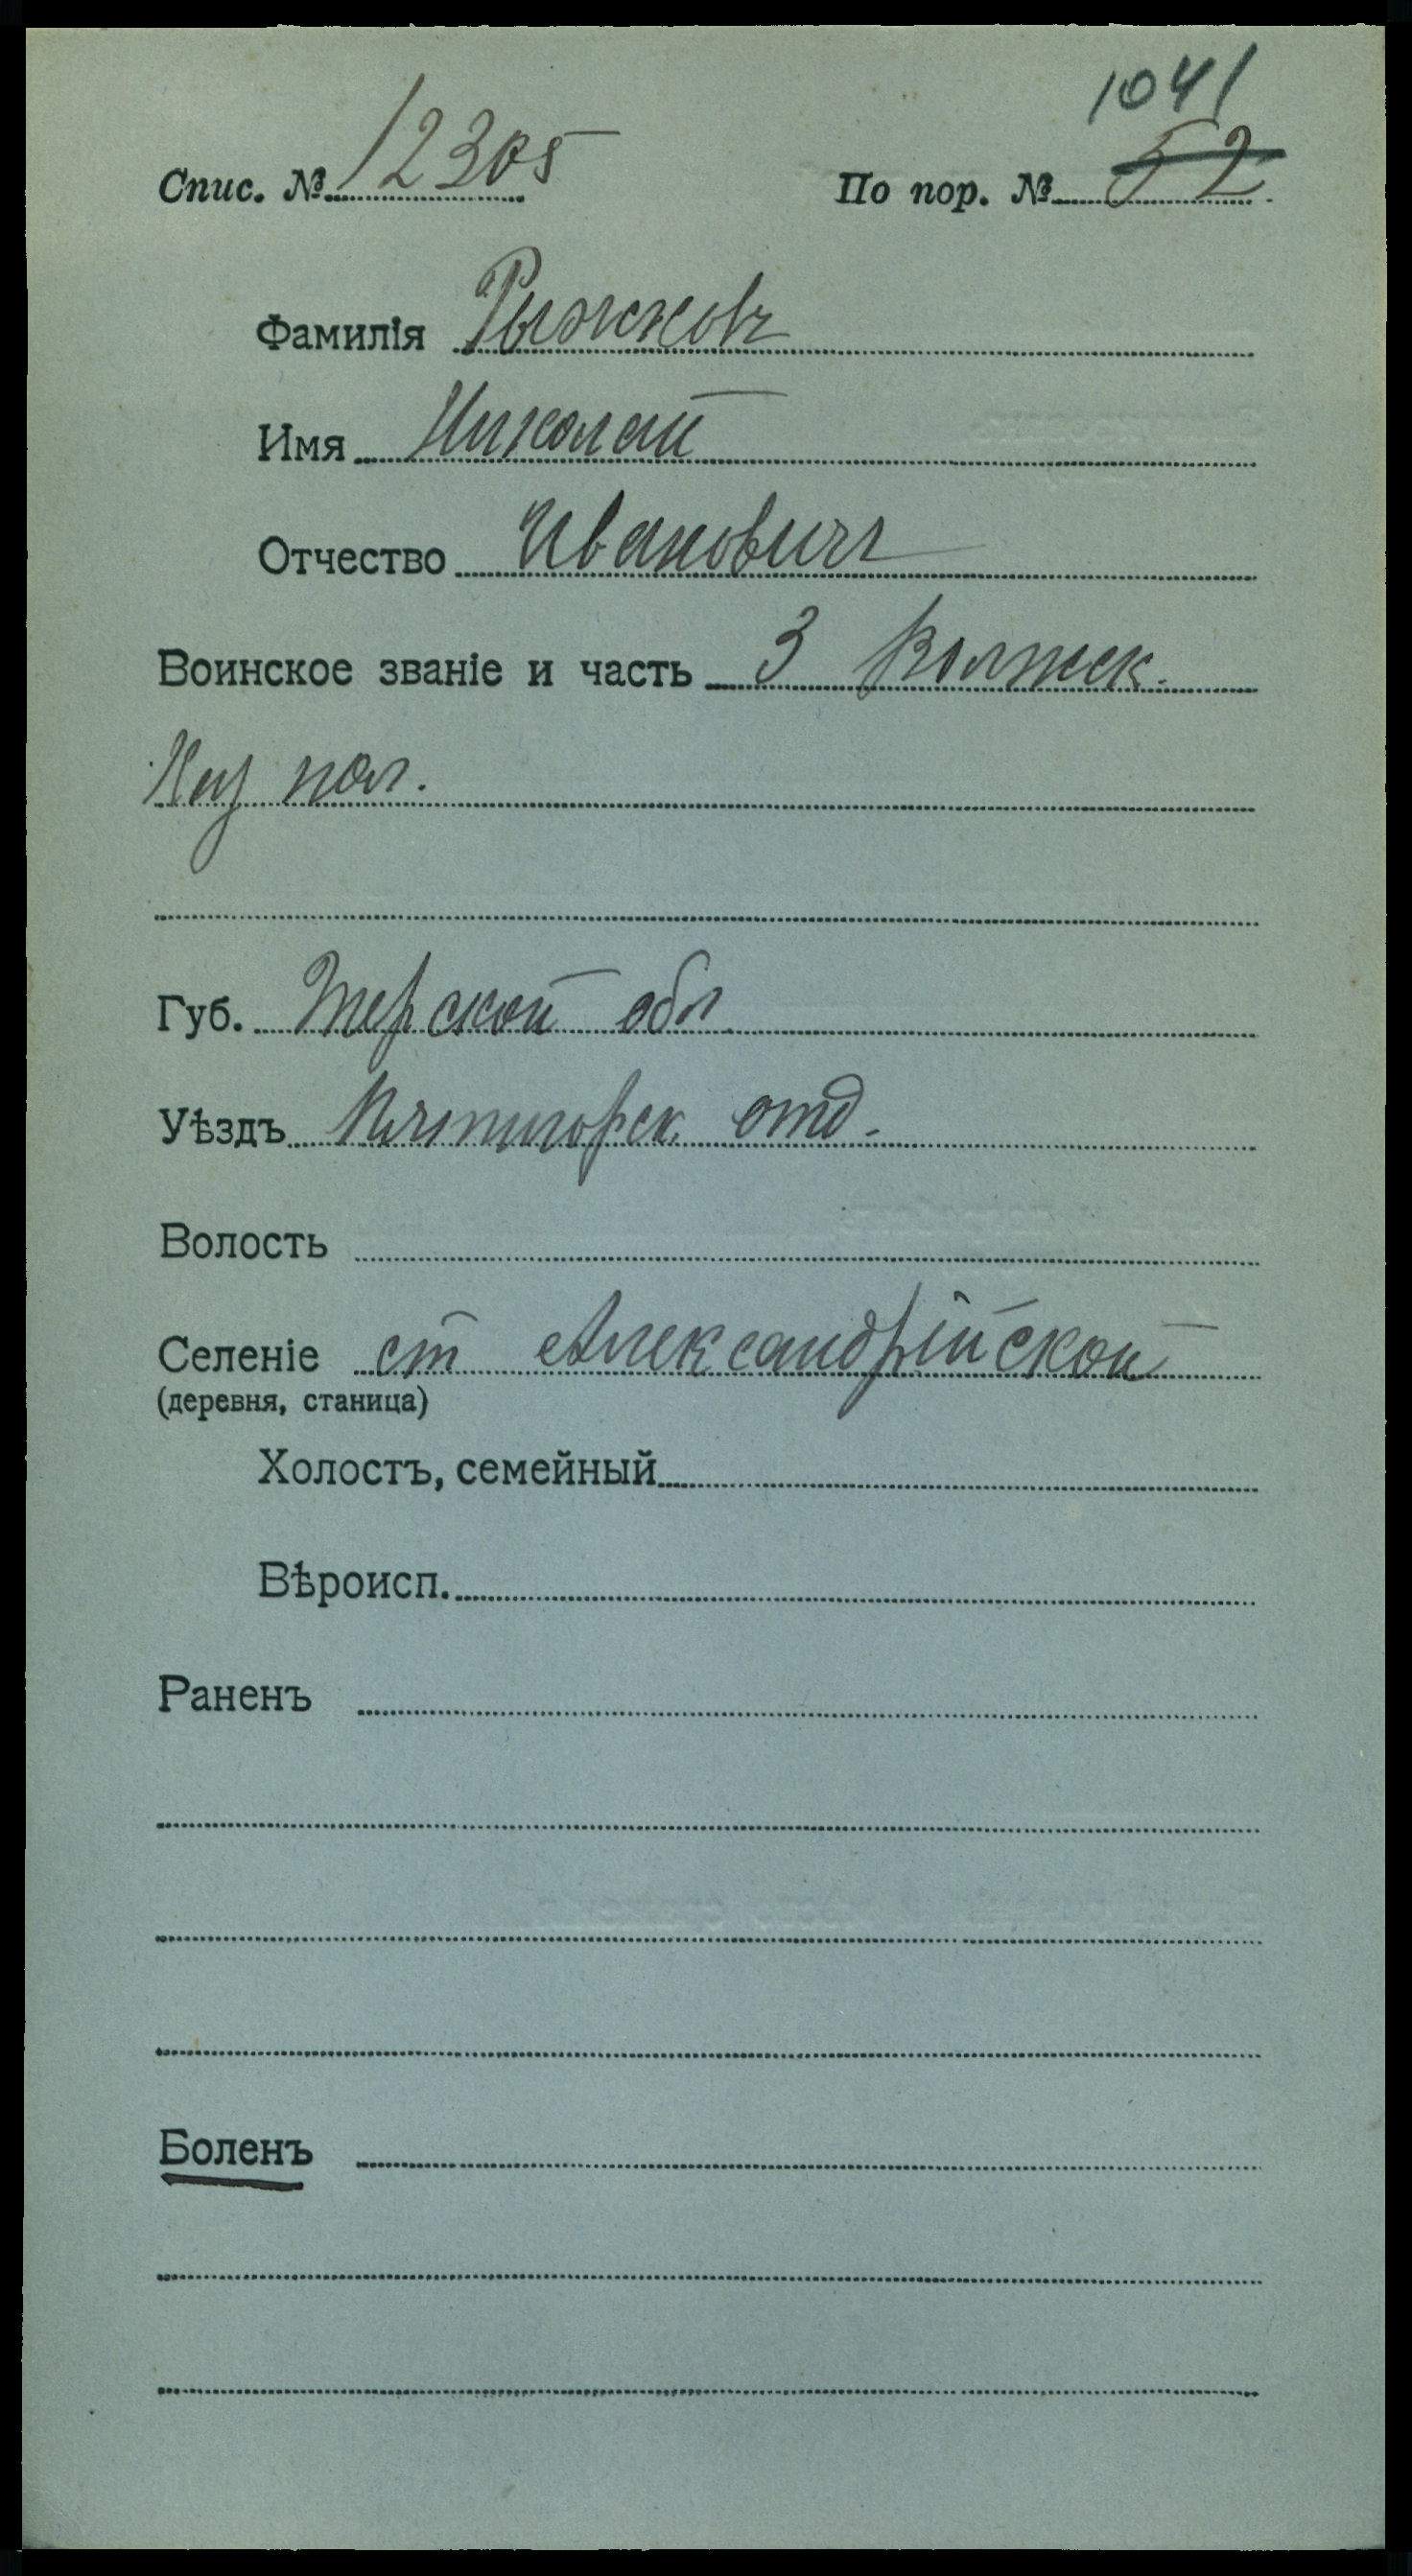 1041
Спис. № 12305 По пор. № 52
Фамилія Рыжковъ
Имя Николай
Отчество Ивановичъ
Воинское званіе и часть 3 Волжск.
Каз пол.
Губ. Терской обл
Уѣздъ Пятигорск. отд.
Волость
Селеніе ст Александрійской
(деревня, станица)
Холостъ, семейный
Вѣроисп.
Раненъ
Боленъ